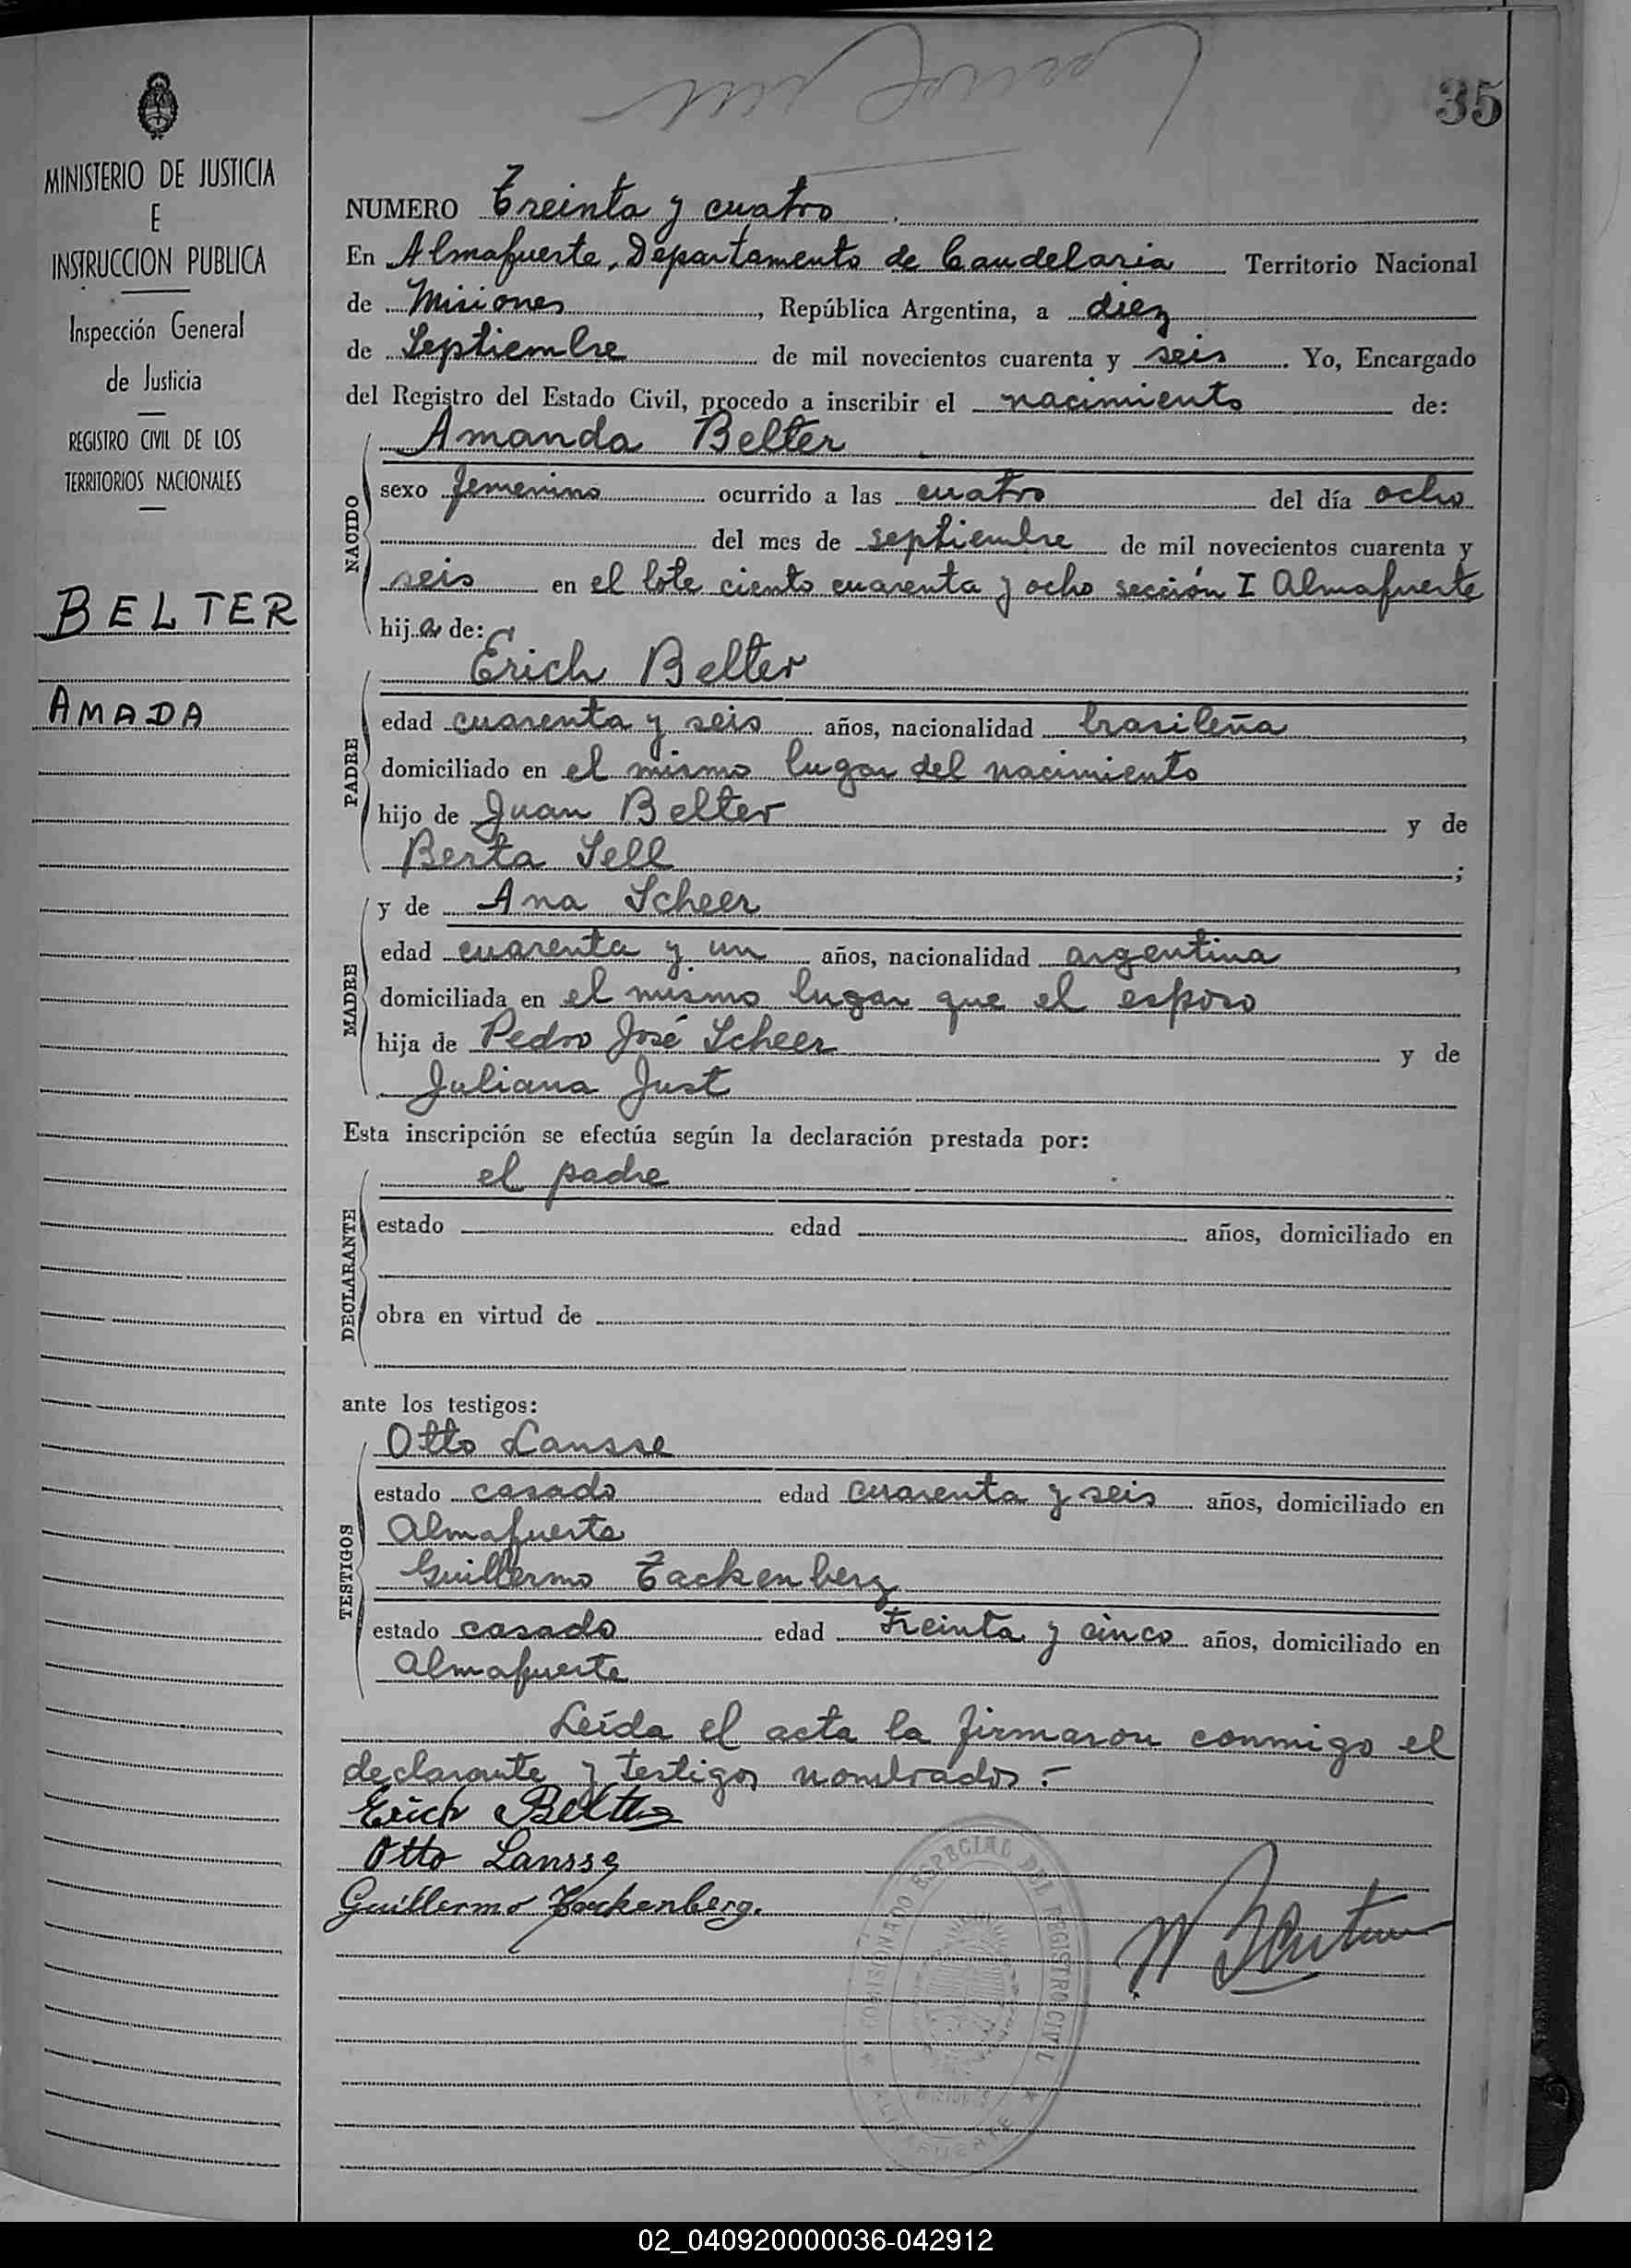 35
MINISTERIO DE JUSTICIA
E
INSTRUCCION PUBLICA
Inspección General
de Justicia
REGISTRO CIVIL DE LOS
TERRITORIOS NACIONALES
BELTER
AMADA
NUMERO Treinta y cuatro
En Almafuerte, Departamento de Candelaria Territorio Nacional
de Misiones, República Argentina, a diez
de Septiembre de mil novecientos cuarenta y seis. Yo, Encargado
del Registro del Estado Civil, procedo a inscribir el nacimiento de:
NACIDO
Amanda Belter
sexo femenino ocurrido a las cuatro del día ocho
del mes de septiembre de mil novecientos cuarenta y
seis en el lote ciento cuarenta y ocho sección I Almafuerte
hija de:
PADRE
Erich Belter
edad cuarenta y seis años, nacionalidad brasileña,
domiciliado en el mismo lugar del nacimiento
hijo de Juan Belter y de
Berta Sell;
MADRE
y de Ana Scheer
edad cuarenta y un años, nacionalidad argentina,
domiciliada en el mismo lugar que el esposo
hija de Pedro José Scheer y de
Juliana Just
Esta inscripción se efectúa según la declaración prestada por:
DECLARANTE
el padre
estado edad años, domiciliado en
obra en virtud de
ante los testigos:
TESTIGOS
Otto Lansse
estado casado edad cuarenta y seis años, domiciliado en
Almafuerte
Guillermo Tackenberg
estado casado edad treinta y cinco años, domiciliado en
Almafuerte
Leída el acta la firmaron conmigo el
declarante y testigos nombrados.-
Erich Belter
Otto Lansse
Guillermo Tackenberg.
COMISIONADO ESPECIAL DEL REGISTRO CIVIL
MISIONES
ALMAFUERTE
02_040920000036-042912